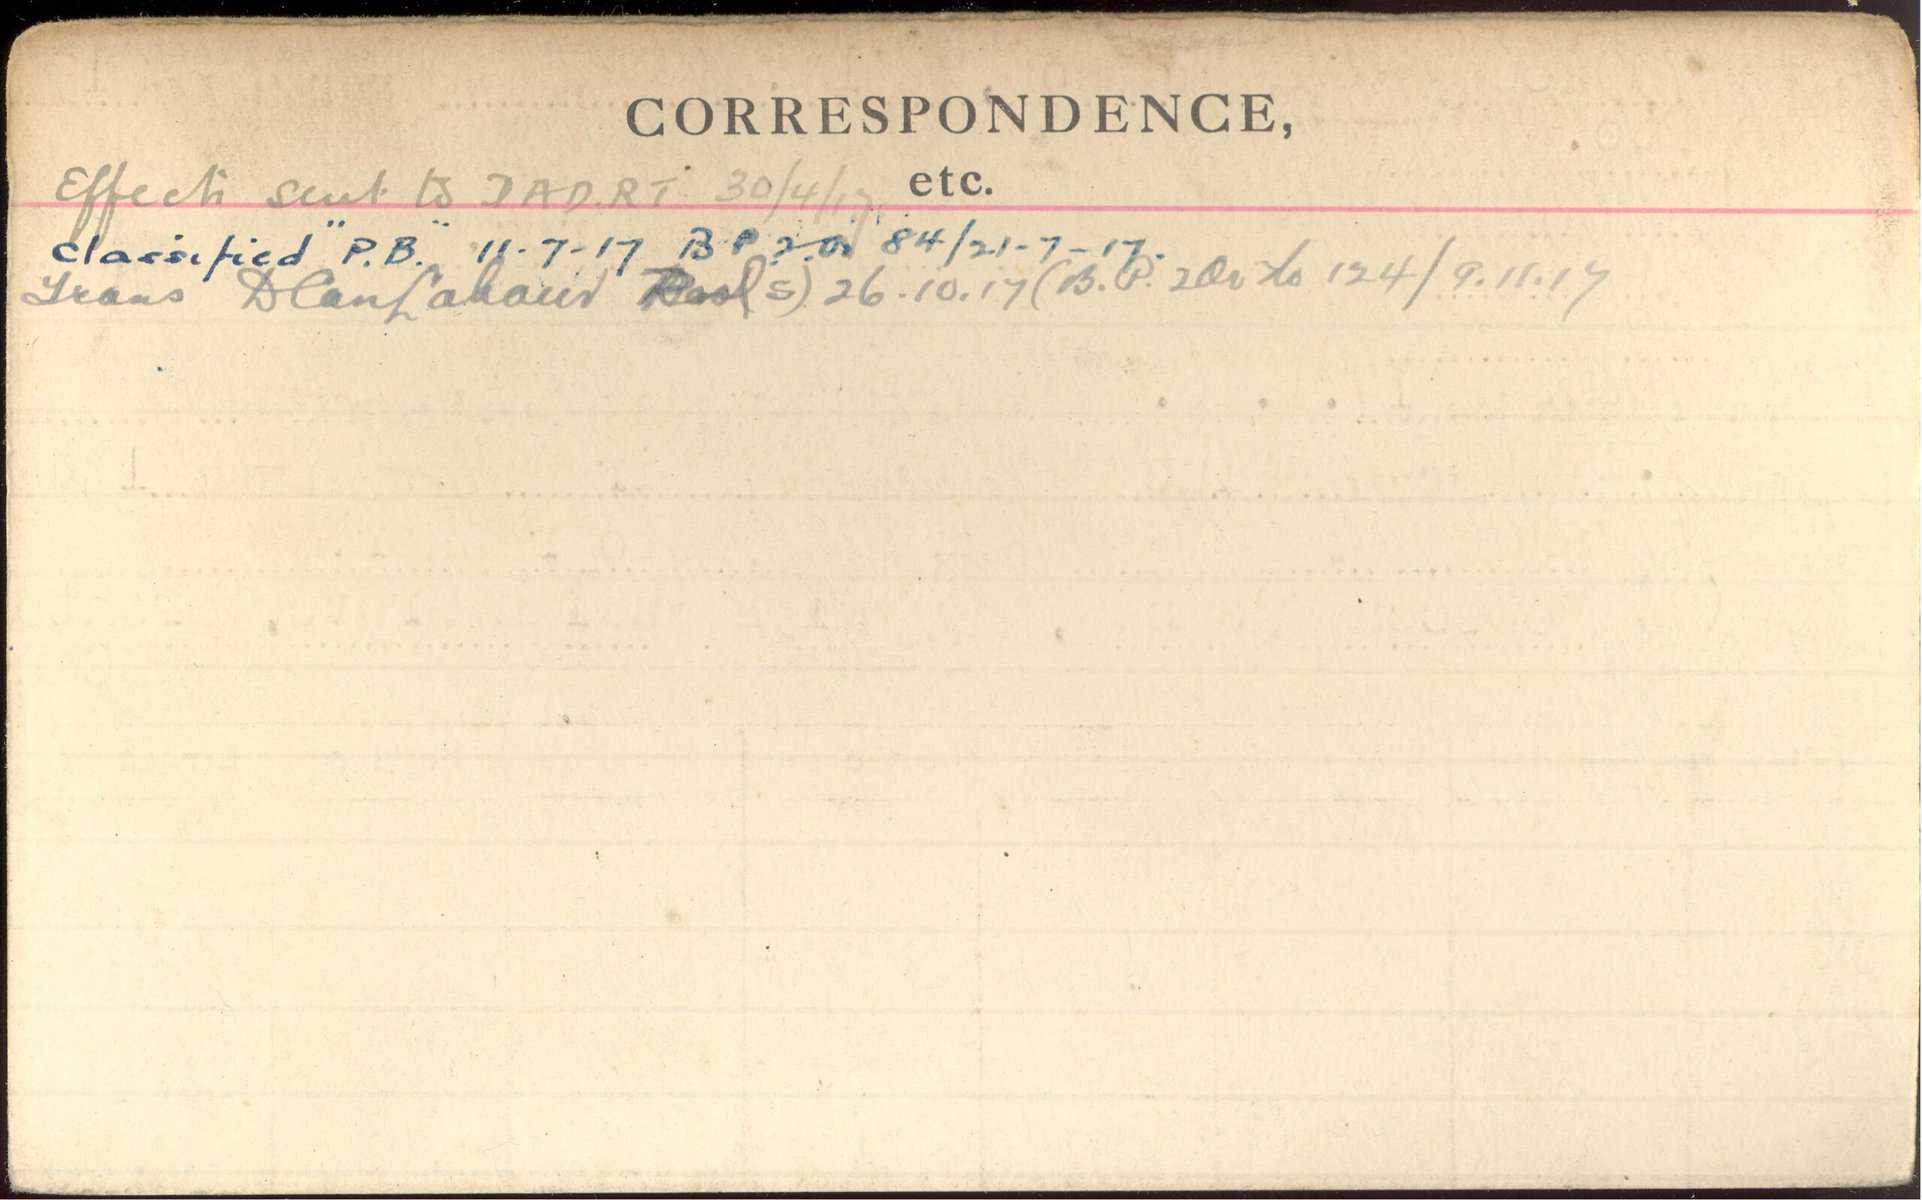 CORRESPONDENCE,
etc.
Effects sent to DAD.RT. 30/4/17.
Classified "P.B." 11-7-17 B P 2 Or 84/21-7-17.
Trans (s) 26.10.17 (B.P. 2 Or to 124/9.11.17